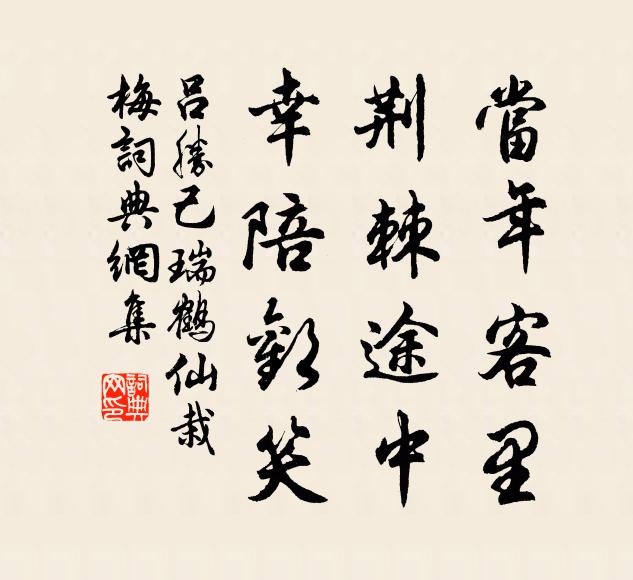 當年客里
荆棘途中
幸陪歡笑
吕勝己瑞鶴仙栽
梅詞典網集
詞典
网印